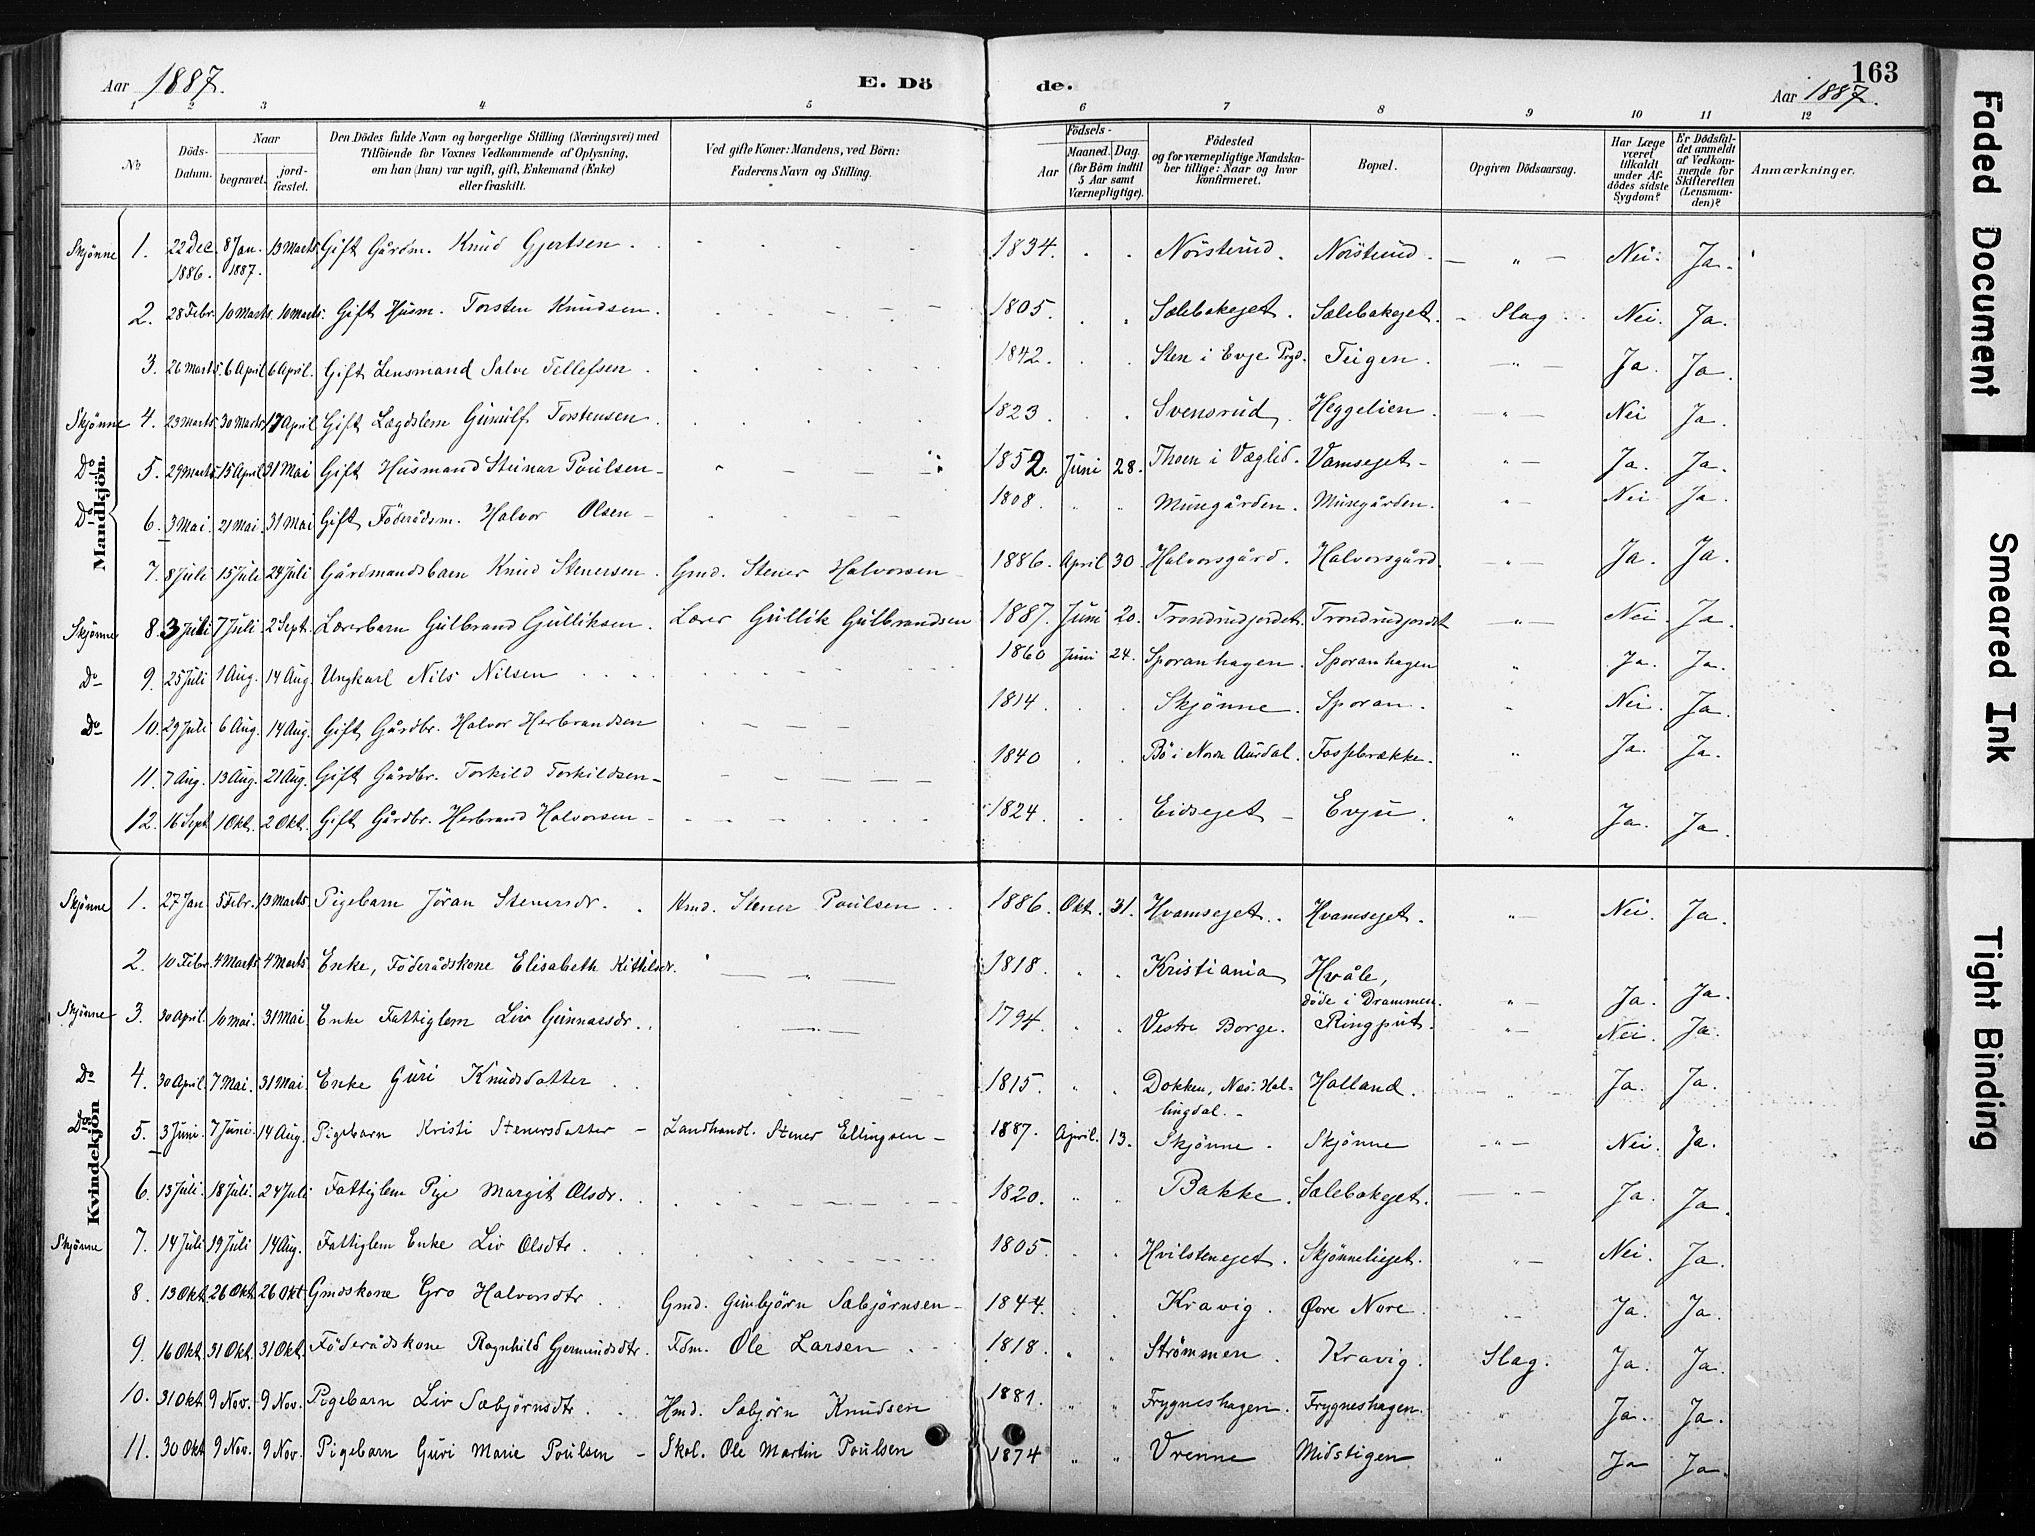 Aar 1887. E. Dö de. Aar 1887. 163
1 2 3 4 5 6 7 8 9 10 11 12
No Döds-Datum. Naar begravet. jord-fæstet. Den Dödes fulde Navn og borgerlige Stilling (Næringsvei) med Tilföiende for Voxnes Vedkommende af Oplysning, om han (hun) var ugift, gift, Enkemand (Enke) eller fraskilt. Ved gifte Koner: Mandens, ved Börn: Faderens Navn og Stilling. Födsels- Aar Maaned. Dag. (for Börn indtil 5 Aar samt Værnepligtige). Födested og for værnepligtige Mandska-ber tillige: Naar og hvor konfirmeret. Bopæl. Opgiven Dödsaarsag. Har Læge været tilkaldt under Af-dödes sidste Sygdom? Er Dödsfal-det anmeldt af Vedkom-mende for Skifteretten (Lensman-den)? Anmærkninger.
Mandkjön.
Skjønne 1. 22 Dec 1886. 8 Jan. 1887. 13 Marts Gift Gårdm. Knud Gjertsen. 1834. Nörsterud. Nörsterud. — " — Nei. Ja.
2. 28 Febr. 10 Marts. 10 Marts. Gift Husm. Torsten Knudsen. 1805. Sælebakejet. Sælebakejet. Slag. Nei. Ja.
3. 26 Marts. 6 April 6 April. Gift Lensmand Salve Tellefsen. 1842. Sten i Evje Prgd. Teigen. — " — Ja. Ja.
Skjønne 4. 23 Marts 30 Marts 17 April Gift Lægdslem Gunulf Torstensen. 1823. Svensrud. Heggelien. — " — Nei Ja.
Do 5. 29 Marts 15 April 31 Mai Gift Husmand Steinar Poulsen — 1852. Juni 28. Thoen i Væglid. Vamsejet — " — Ja. Ja.
Do 6. 3 Mai. 21 Mai. 31 Mai Gift Föderådsm. Halvor Olsen — 1808. Musegården. Musegården. " — Nei Ja.
7. 8 Juli 15 Juli 24 Juli Gårdmandsbarn Knud Stenersen. Gmd. Stener Halvorsen — 1886. April 30 Halvorsgård. Halvorsgård. — " — Ja. Ja.
Skjønne 8. 3 Juli 7 Juli 2 Sept. Lærerbarn Gulbrand Gulliksen. Lærer Gullik Gulbrandsen 1887. Juni 20. Trondrudjordet. Trondrudjordet — " — Nei. Ja.
Do 9. 25 Juli 1 Aug. 14 Aug. Ungkarl Nils Nilsen 1860 Juni 24. Sporanhagen. Sporanhagen " Ja. Ja.
Do 10. 29 Juli 6 Aug. 14 Aug. Gift Gårdbr. Halvor Herbrandsen 1814. Skjönne. Sporan. " Nei. Ja.
11. 7 Aug. 13 Aug. 21 Aug. Gift Gårdbr. Torkild Torkildsen — 1840 Bö i Nordre Aurdal. Fossebrække. " Ja. Ja.
12. 16 Sept 1 Okt. 2 Okt. Gift Gårdbr. Herbrand Halvorsen — 1824. Eidsejet — Evju. " Ja. Ja.
Kvindekjön
Skjønne 1. 27 Jan. 5 Febr. 13 Marts Pigebarn Jöran Stenersdr. Hmd. Stener Poulsen. 1886. Okt. 31. Hvamsejet. Hvamsejet. " — Nei. Ja.
2. 10 Febr 4 Marts 4 Marts Enke, Föderådskone Elisabeth Kittilsdr. 1818. Kristiania Hvåle,
döde i Drammen. " — Ja. Ja.
Skjønne 3. 30 April. 10 Mai. 31 Mai Enke Fattiglem Liv Gunnarsdr. 1794. Vestre Borge. Ringput. " — Nei. Ja.
Do 4. 30 April 7 Mai. 31 Mai Enke Guri Knudsdatter 1815. Dokken, Nes. Hal-
lingdal. Halland. Ja. Ja.
Do 5. 3 Juni. 7 Juni. 14 Aug. Pigebarn Kristi Stenersdatter — Landhandl. Stener Ellingsen — 1887. April. 13. Skjönne. Skjönne " — Nei. Ja.
6. 13 Juli. 18 Juli. 24 Juli Fattiglem Pige Margit Olsdr. 1820. Bakke. Sælebakejet. — " — Ja. Ja.
Skjønne 7. 14 Juli 19 Juli 14 Aug. Fattiglem Enke Liv Olsdtr. 1805. Hvilstenejet. Skjönneliejet. " — Nei. Ja.
8. 13 Okt. 26 Okt. 26 Okt Gmdskone Gro Halvorsdtr. Gmd. Gunbjörn Sæbjörnsen — 1844. Kravig. Övre Nore. Ja. Ja.
9. 16 Okt. 31 Okt. 31 Okt. Föderådskone Ragnhild Gjermundsdtr. Fdm. Ole Larsen. 1818. Strömmen. Kravig. Slag. Ja. Ja.
10. 31 Okt. 9 Nov. 9 Nov. Pigebarn Liv Sæbjörnsdtr. Hmd. Sæbjörn Knudsen 1881. Frygneshagen. Frygneshagen. " Ja. Ja.
11. 30 Okt 9 Nov. 9 Nov. Pigebarn Guri Marie Poulsen — Skol. Ole Martin Poulsen 1874 Vrenne Midstigen " Ja Ja.
Faded Document
Smeared Ink
Tight Binding